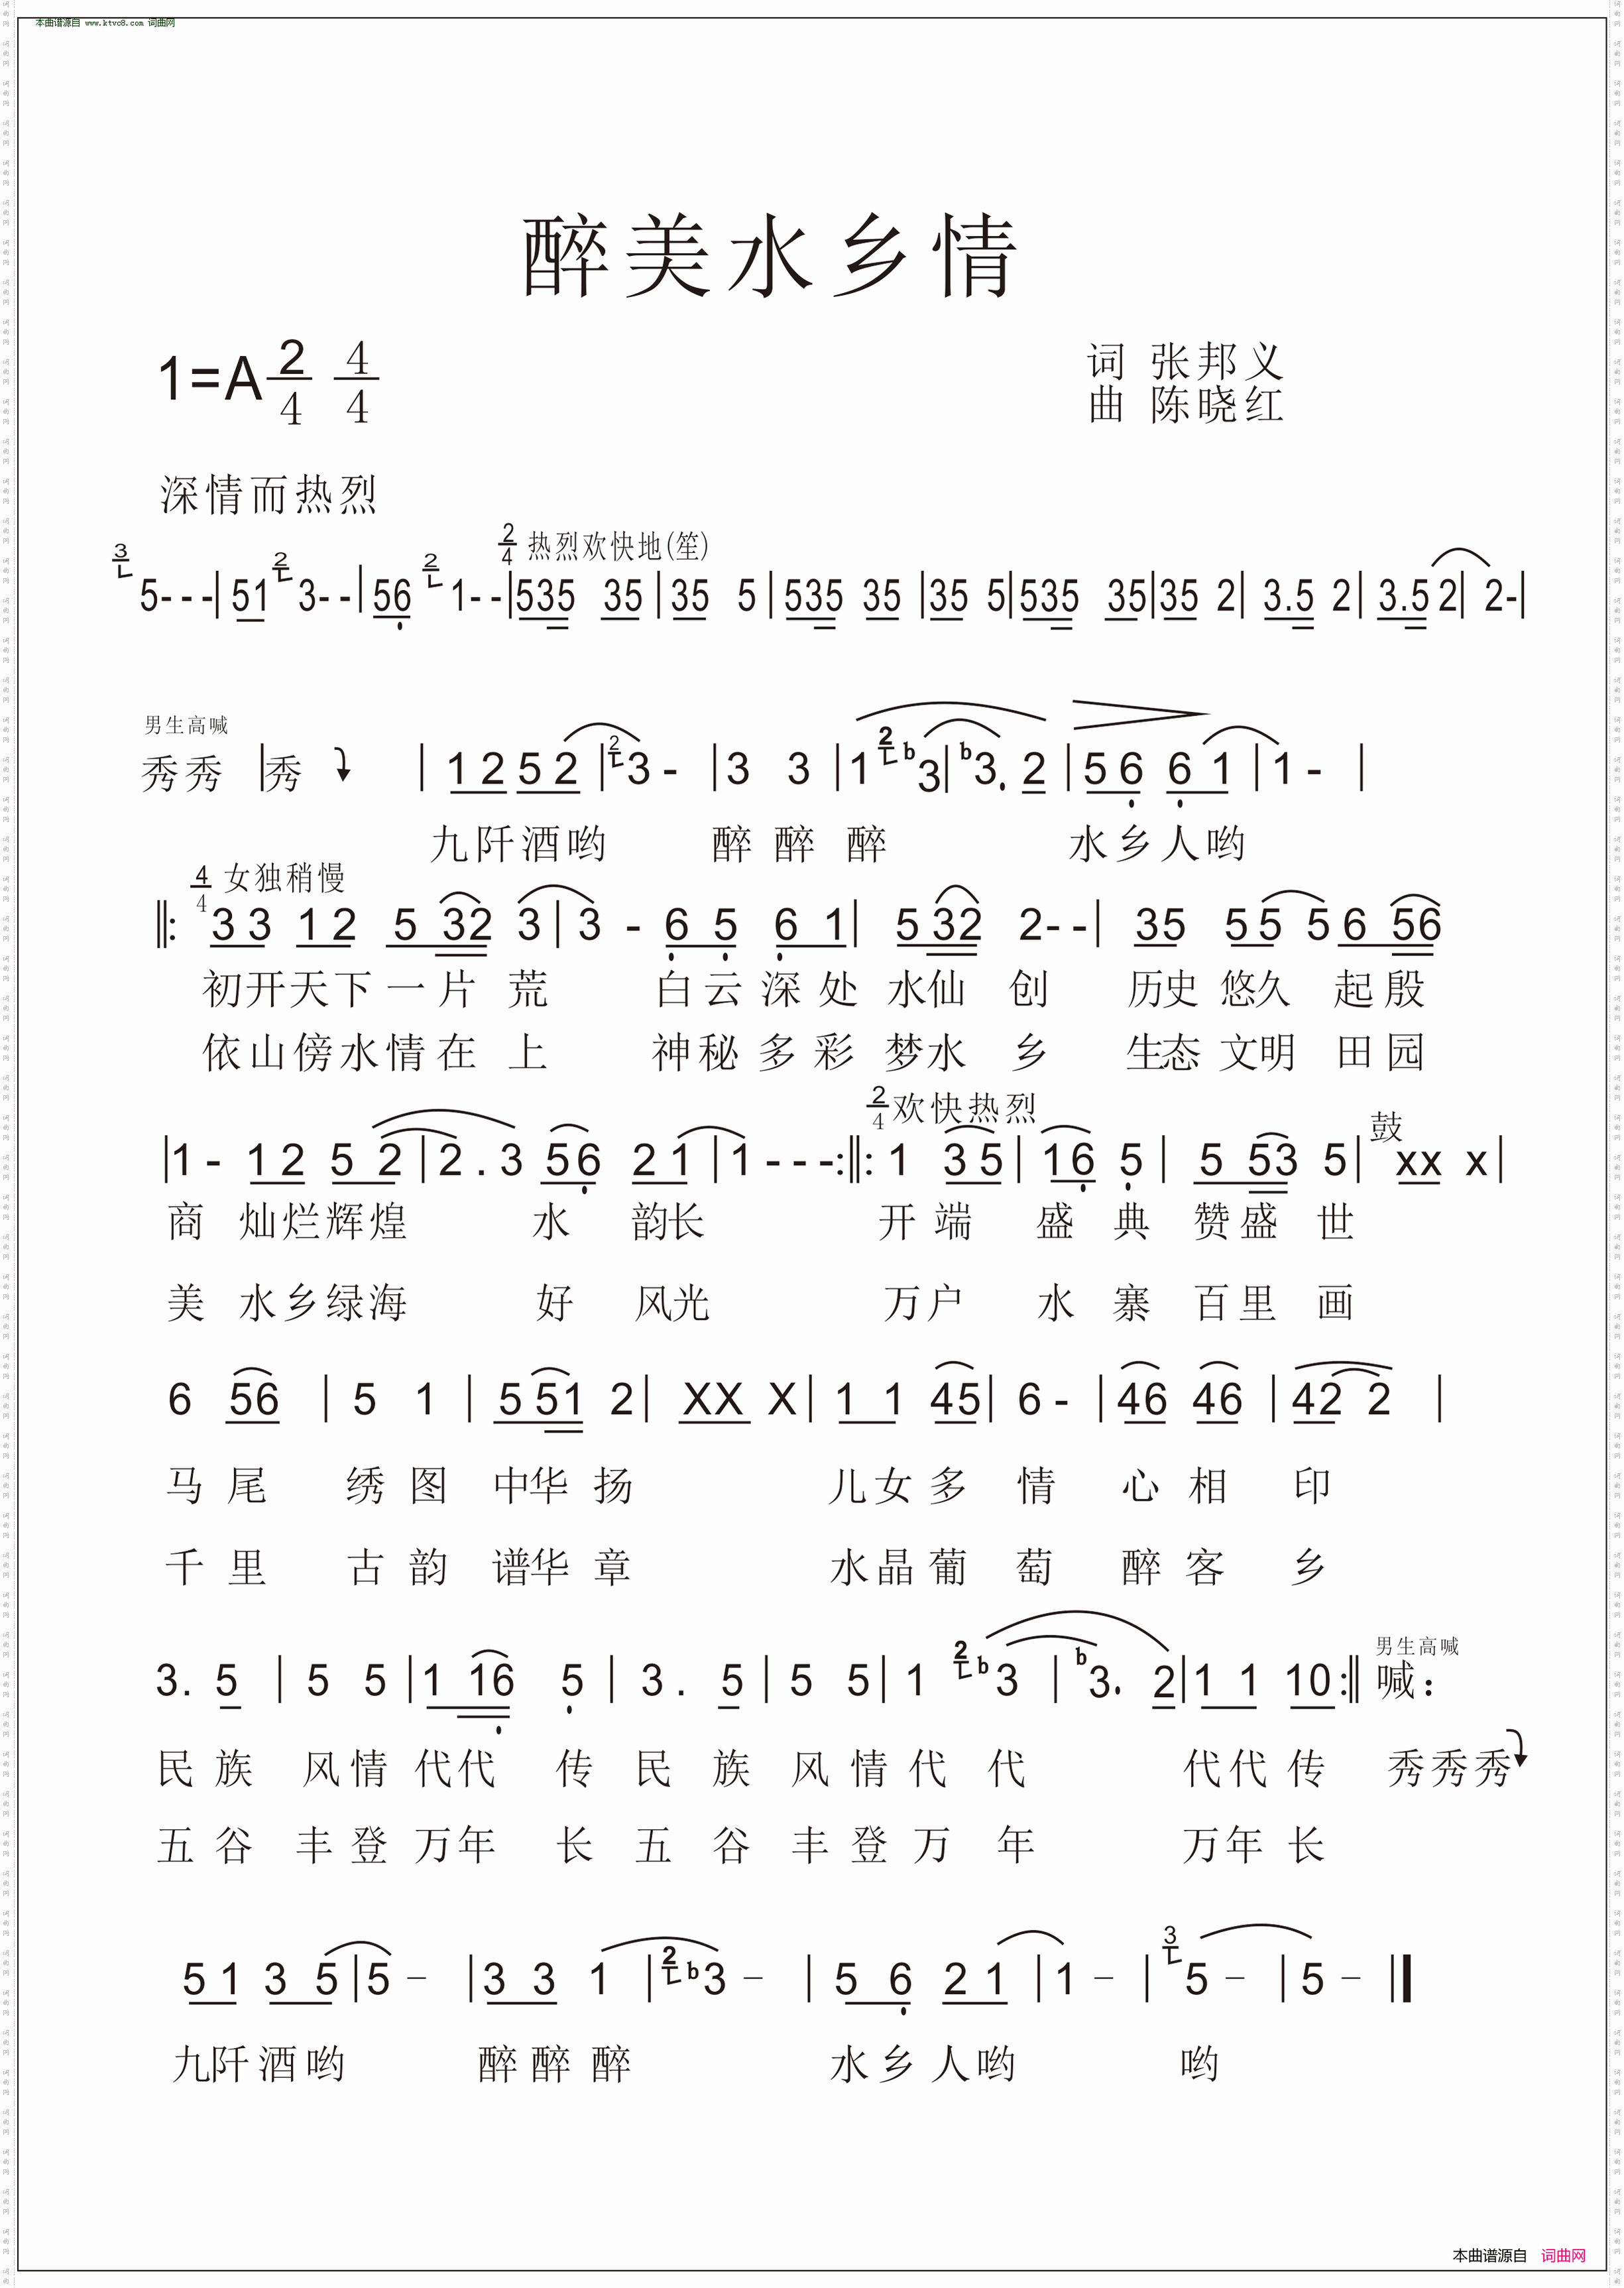 本曲谱源自 www.ktvc8.com 词曲网
醉美水乡情
1=A 2/4 4/4
词 张邦义
曲 陈晓红
深情而热烈
2/4 热烈欢快地(笙)
3 5---|51 2 3--|56 2 1--|535 35|35 5|535 35|35 5|535 35|35 2|3.5 2|3.5 2|2-|
男生高喊
秀秀 |秀 | 12 52|2 3-|3 3|1 2 b3|b3. 2|56 61|1-|
九阡酒哟 醉醉醉 水乡人哟
4/4 女独稍慢
‖: 33 12 5 32 3|3 - 65 61|5 32 2--|35 55 56 56
初开天下一片荒 白云深处水仙创 历史悠久起殷
依山傍水情在上 神秘多彩梦水乡 生态文明田园
2/4 欢快热烈
鼓
|1- 12 52|2.3 56 21|1---:‖: 1 35|16 5|5 53 5|xx x|
商 灿烂辉煌 水 韵长 开端 盛典 赞盛世
美 水乡绿海 好 风光 万户 水寨 百里画
6 56|5 1|5 51 2|XX X|11 45|6-|46 46|42 2|
马尾 绣图 中华扬 儿女多情 心相印
千里 古韵 谱华章 水晶葡萄 醉客乡
男生高喊
3. 5|5 5|1 16 5|3. 5|5 5|1 2 b3|b3. 2|11 10:‖ 喊：
民族 风情代代 传 民族 风情代代 代代传 秀秀秀
五谷 丰登万年 长 五谷 丰登万年 万年长
51 35|5-|33 1|2 b3-|56 21|1-|3 5-|5-‖
九阡酒哟 醉醉醉 水乡人哟 哟
本曲谱源自 词曲网